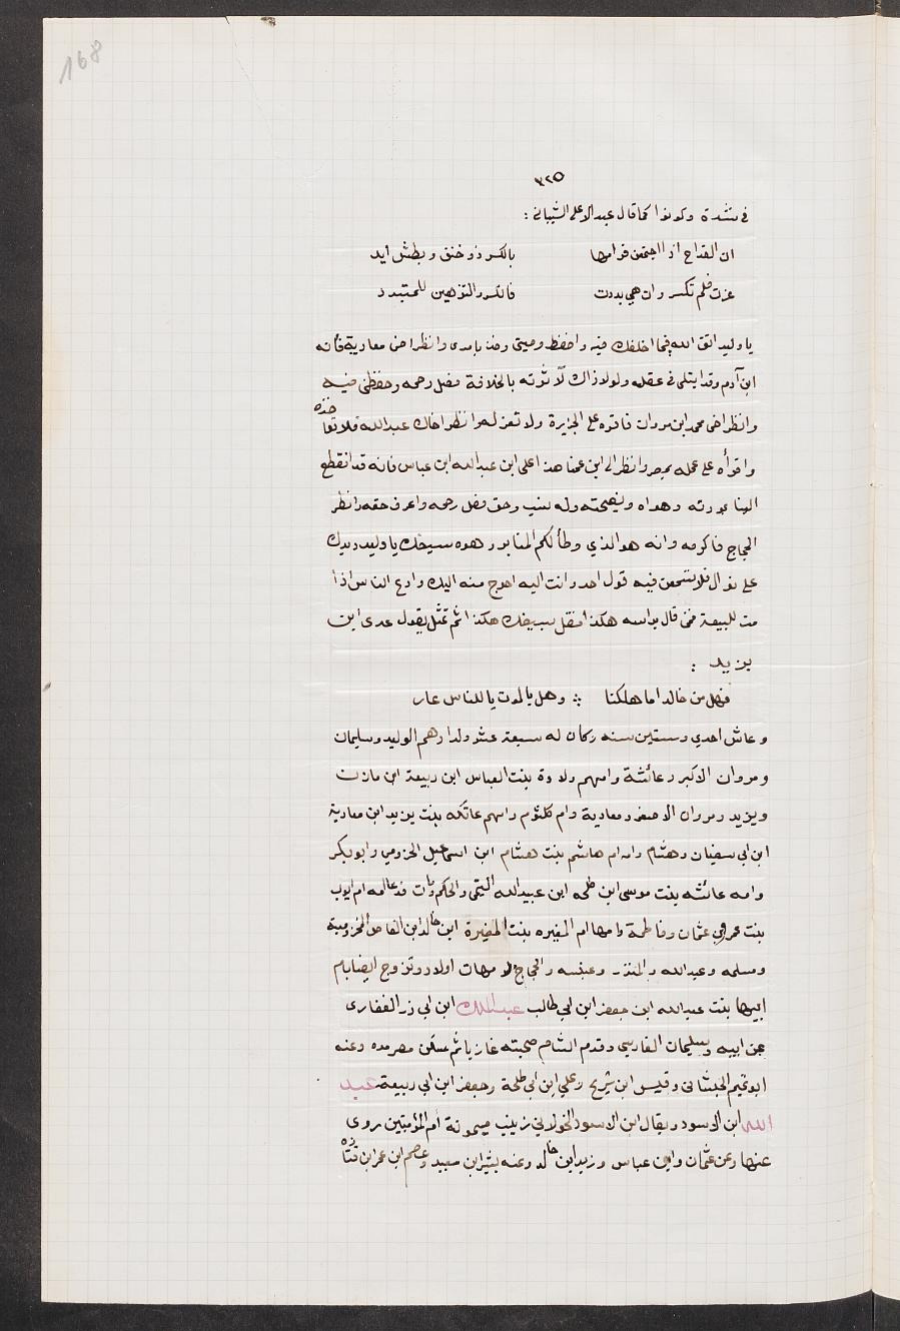 168
٣٢٥
في شدة وكونوا كما قال عبد الاعلى الشيباني :
ان القداح اذا اجتمعن فرامها بالكسر ذو خنق وبطش ايد
عزت فلم تكسر وان هي بددت فالكسر والتوهين للمتبدد
يا وليد اتق الله فيما اخلفك فيه واحفظ وصيتي وانظر اخي معاوية فأنه
ابن آدم وقد ابتلى في عقله ولولا ذاك لآثرته بالخلافة فصل رحمه وحفظني فيه
وانظر اخي محمد ابن مروان فاقره على الجزيرة ولا تعزله وانظر اخاك عبدالله فلا تؤاخذه
واقرأه على عمله بمصر وانظر الى ابن عمنا هذا على ابن عبدالله ابن عباس فانه قد انقطع
الينا بمودته وهواه ونصيحته وله نسب وحق فصل رحمه واعرف حقه وانظر
الحجاج فاكرمه وانه هو الذي وطأ لكم المنابر وهو سيفك يا وليد ويدك
على فلا تسمعن فيه قول احد وانت اليه احوج منه اليك وادع الناس اذا
مت للبيعة فمن قال براسه هكذا فقل بسيفك هكذا ثم تمثل بقول عدى ابن
يزيد :
فهل من خالد اما هلكنا ؞ وهل بالموت يا للناس عار
وعاش احدي وستين سنه وكان له سبعة عشر ولدا وهم الوليد وسليمان
ومروان الاكبر وعائشة وامهم ولادة بنت العباس ابن ربيعة ابن مازن
ويزيد ومروان الاصغر ومعادية وام كلثوم وامهم عاتكه بنت يزيد ابن معاوية
ابن ابي سفيان وهشام وامه ام هاشم بنت هشام ابن اسماعيل المخزومي وابو بكر
وامه عائشه بنت موسى ابن طلحه ابن عبيدالله التيمى والحكم وامه ام ايوب
بنت عمرو عثمان وفاطمة وامها ام المغيره بنت المغيرة ابن خالد ابن العاص المخزومية
ومسلمه وعبدالله والمنذر وعنبسه والحجاج لامهات اولاد وتزوج ايضا بام
ابيها بنت عبدالله ابن جعفر ابن ابي طالب عبدالملك ابن ابي ذر الغفارى
عن ابيه وسليمان الفارسي وقدم الشام صحبته غازيا ثم سكن مصر مده وعنه
ابو تميم الجيشانى وقيس ابن شريح وعلي ابن ابي طلحة وجعفر ابن ابي ربيعة عبيد
الله ابن الاسود ويقال ابن الاسود الخولاني ربيب ميمونة ام المؤمنين روى
عنها وعن عثمان وابن عباس وزيد ابن خالد وعنه بشر ابن سعيد وعاصم ابن عمر ابن قتادة